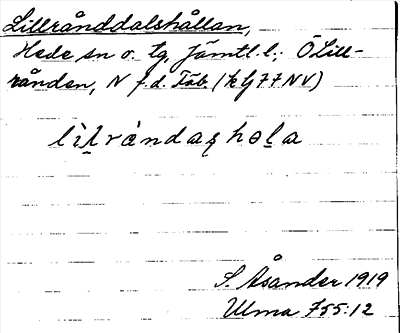 Lillrånddalshållan,
Hede sn o. tg Jämtl. l.; Ö Lill-
rånden, N f.d. Fäb. (kbj 77 NV)
S. Åsander 1919
Ulma 755:12